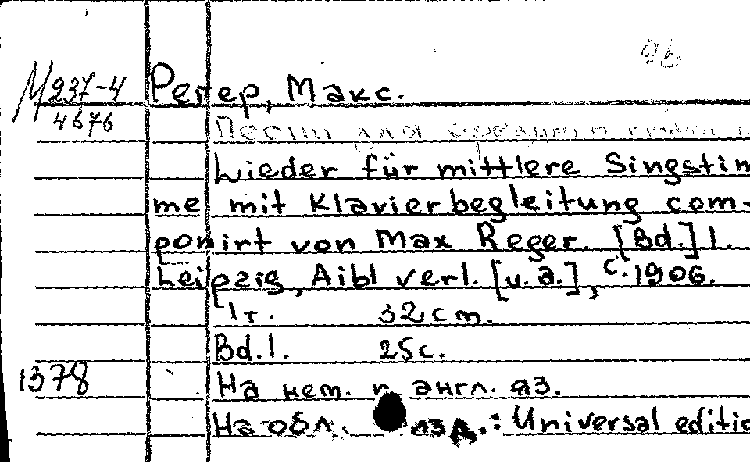 96
М 237-4 Регер, Макс.
4676
Песни для среднего голоса
Lieder für mittlere Singstim
me mit Klavierbegleitung com-
ponirt von Max Reger. [Bd.] 1.
Leipzig, Aibl verl. [u. a.], c. 1906.
1 т. 32 cm.
Bd. 1. 25 с.
1378 На нем. и англ. яз.
На обл. изд.: Universal editio